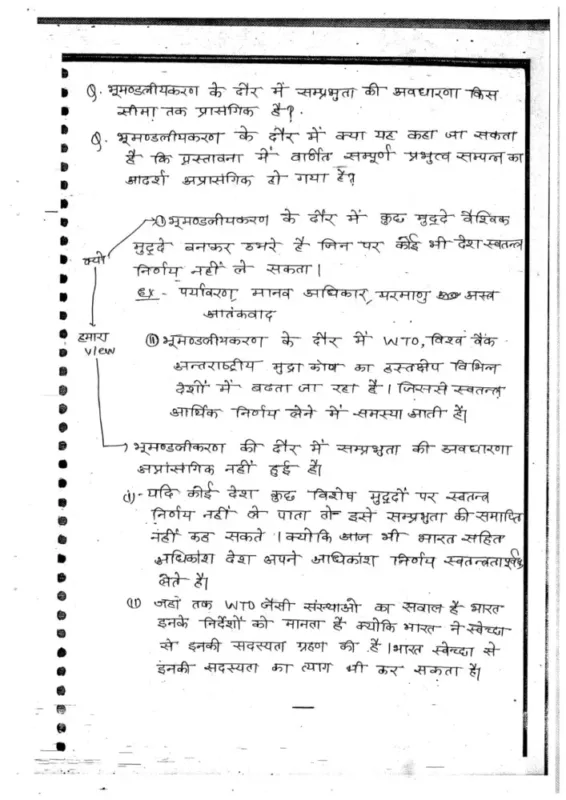 Q. भूमण्डलीयकरण के दौर में सम्प्रभुता की अवधारणा किस
सीमा तक प्रासंगिक है?
Q. भूमण्डलीयकरण के दौर में क्या यह कहा जा सकता
है कि प्रस्तावना में वर्णित सम्पूर्ण प्रभुत्व सम्पन्न का
आदर्श अप्रासंगिक हो गया है?
क्यों
(i) भूमण्डलीयकरण के दौर में कुछ मुद्दे वैश्विक
मुद्दे बनकर उभरे है जिन पर कोई भी देश स्वतन्त्र
निर्णय नहीं ले सकता।
Ex - पर्यावरण, मानव अधिकार, परमाणु अस्त्र
आतंकवाद
हमारा
view
(ii) भूमण्डलीयकरण के दौर में WTO, विश्व बैंक
अन्तराष्ट्रीय मुद्रा कोष का हस्तक्षेप विभिन्न
देशों में बढता जा रहा है। जिससे स्वतन्त्र
आर्थिक निर्णय लेने में समस्या आती है।
भूमण्डलीकरण की दौर में सम्प्रभुता की अवधारणा
अप्रासंगिक नहीं हुई है।
(i)- यदि कोई देश कुछ विशेष मुद्दों पर स्वतन्त्र
निर्णय नहीं ले पाता तो इसे सम्प्रभुता की समाप्ति
नहीं कह सकते। क्योकि आज भी भारत सहित
अधिकांश देश अपने अधिकांश निर्णय स्वतन्त्रतापूर्वक
लेते है।
(ii) जहाँ तक WTO जैसी संस्थाओ का सवाल है भारत
इनके निर्देशों को मानता है क्योकि भारत ने स्वेच्छा
से इनकी सदस्यता ग्रहण की है। भारत स्वेच्छा से
इनकी सदस्यता का त्याग भी कर सकता है।